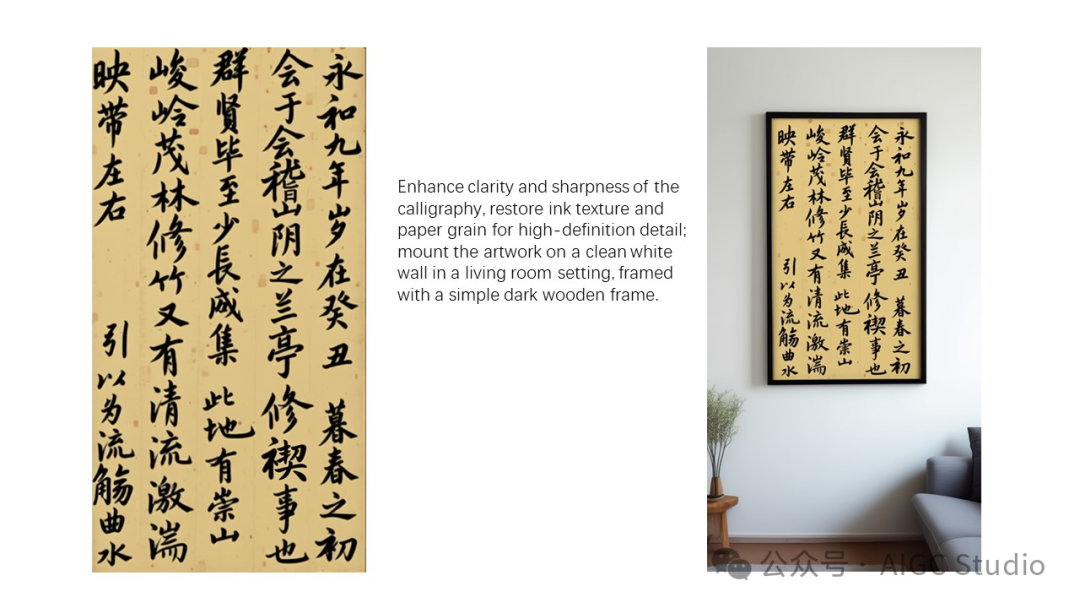 永和九年岁在癸丑 暮春之初
会于会稽山阴之兰亭 修禊事也
群賢毕至少長咸集 此地有崇山
峻岭茂林修竹又有清流激湍
映带左右 引以为流觞曲水
Enhance clarity and sharpness of the
calligraphy, restore ink texture and
paper grain for high-definition detail;
mount the artwork on a clean white
wall in a living room setting, framed
with a simple dark wooden frame.
永和九年岁在癸丑 暮春之初
会于会稽山阴之兰亭 修禊事也
群賢毕至少長咸集 此地有崇山
峻岭茂林修竹又有清流激湍
映带左右 引以为流觞曲水
公众号 · AIGC Studio